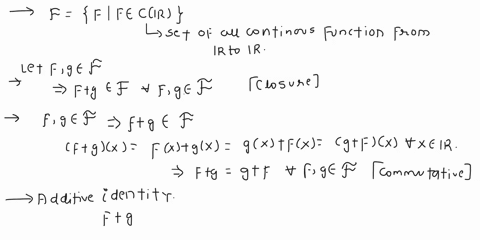 → F = { F | F ∈ C(IR) }
↳ set of all continous function from
IR to IR.
Let F, g ∈ F̃
→ ⇒ F+g ∈ F ∀ F, g ∈ F̃ [closure]
→ F, g ∈ F̃ ⇒ f+g ∈ F̃
(f+g)(x) = F(x)+g(x) = g(x)+F(x) = (g+F)(x) ∀ x ∈ IR.
⇒ F+g = g+F ∀ F, g ∈ F̃ [commutative]
→ Additive identity.
F+g